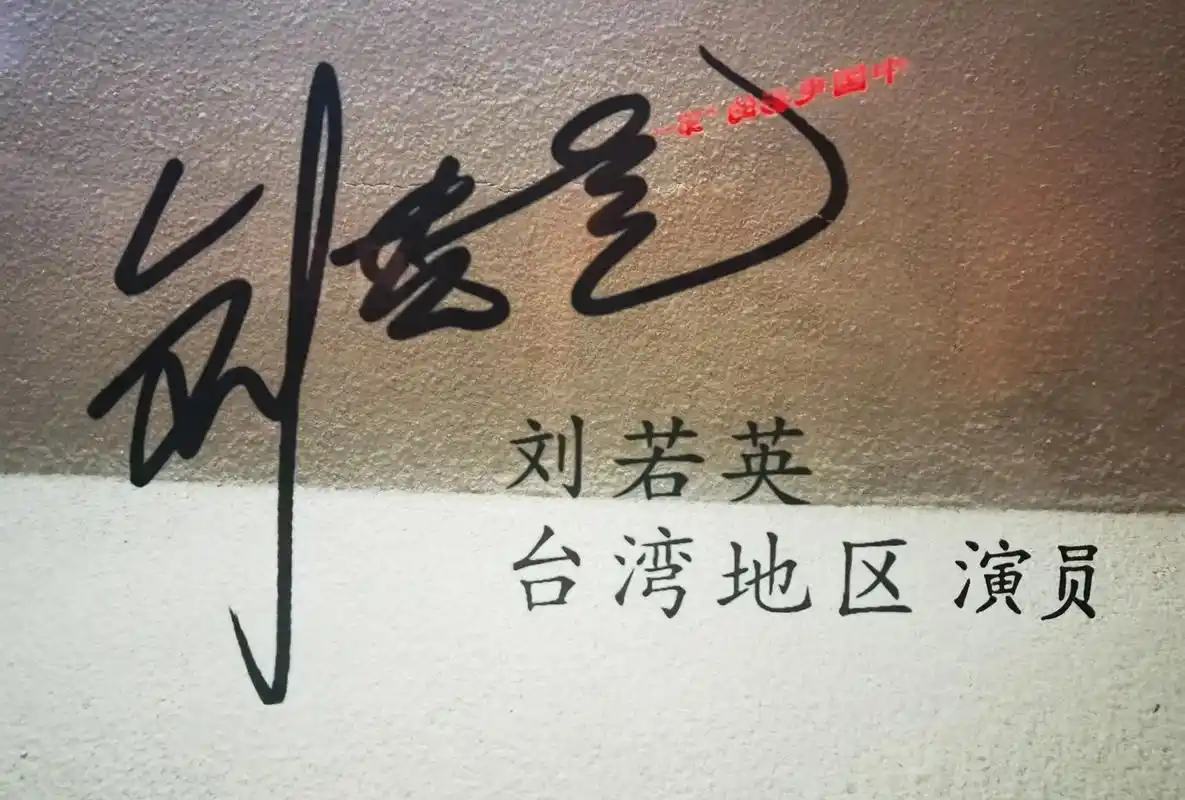 刘若英
刘若英
台湾地区 演员